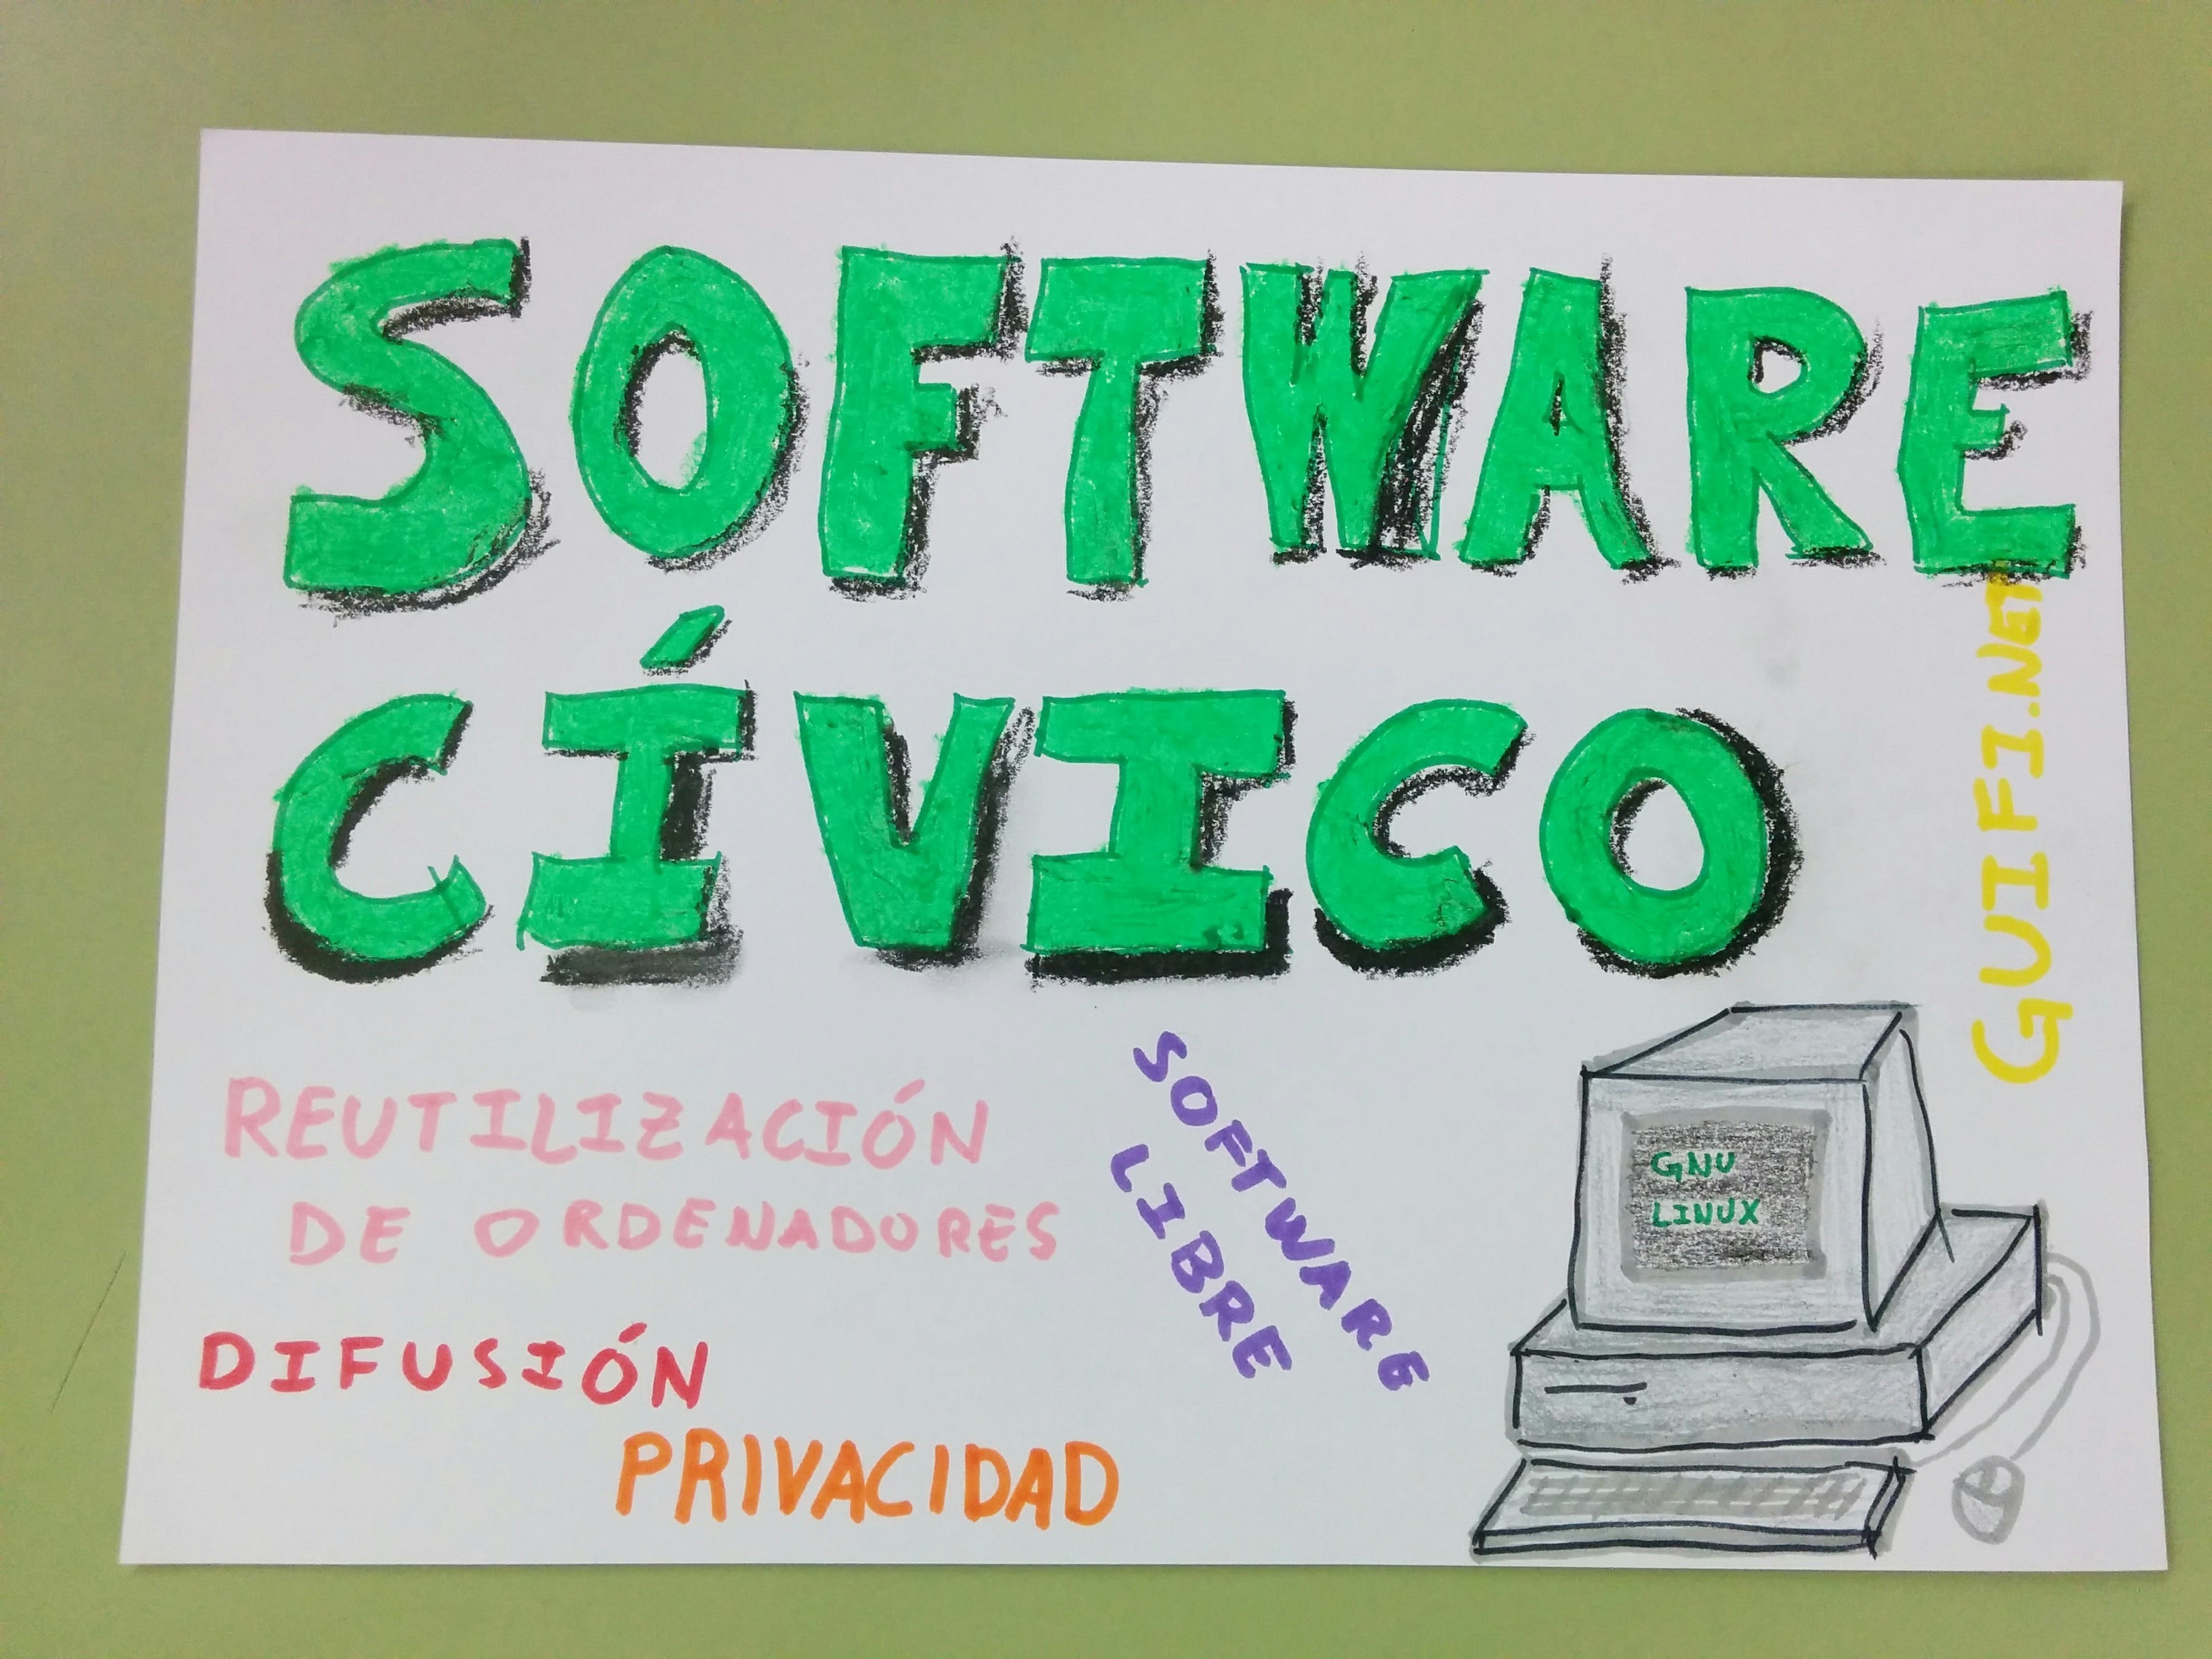 SOFTWARE
CÍVICO
GUIFI.NET
REUTILIZACIÓN
DE ORDENADORES
SOFTWARE
LIBRE
GNU
LINUX
DIFUSIÓN
PRIVACIDAD